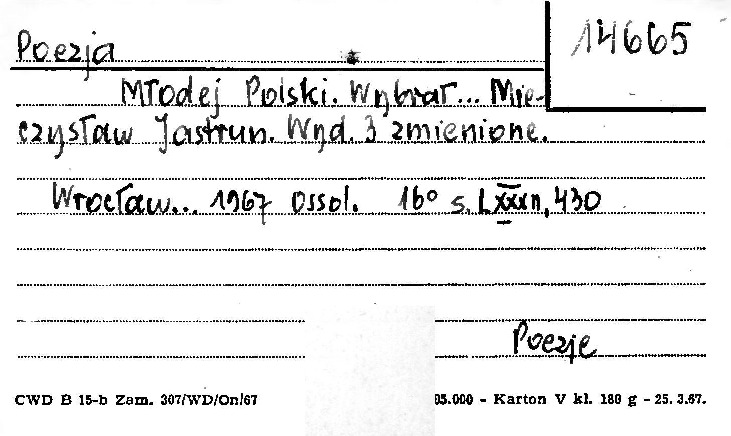 14665
Poezja
Młodej Polski. Wybrał... Mie-
czysław Jastrun. Wyd. 3 zmienione.
Wrocław... 1967 Ossol. 16° s. LXXXII, 430
Poezje
CWD B 15-b Zam. 307/WD/On/67 05.000 - Karton V kl. 180 g - 25. 3.67.